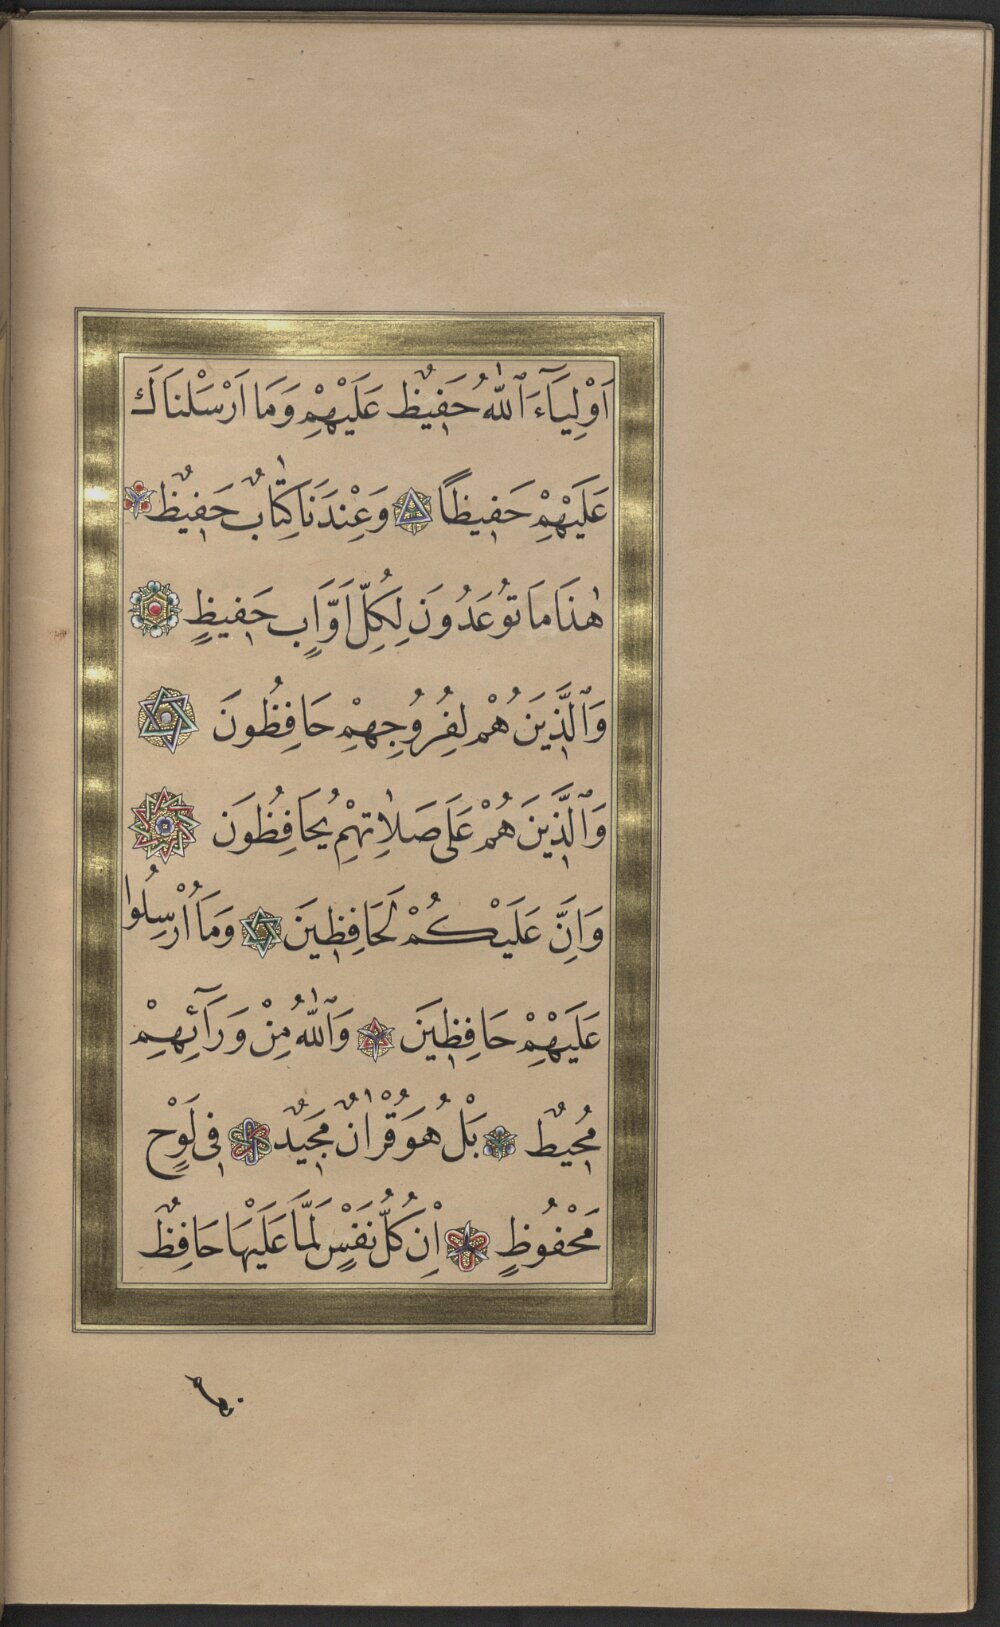 اَوْلِيَآءَ ٱللّٰهُ حَفِيظٌ عَلَيْهِمْ وَمَا اَرْسَلْنَاكَ
عَلَيْهِمْ حَفِيظًا وَعِنْدَنَا كِتَابٌ حَفِيظٌ
هٰذَا مَا تُوعَدُونَ لِكُلِّ اَوَّابٍ حَفِيظٍ
وَٱلَّذِينَ هُمْ لِفُرُوجِهِمْ حَافِظُونَ
وَٱلَّذِينَ هُمْ عَلَى صَلَاتِهِمْ يُحَافِظُونَ
وَاِنَّ عَلَيْكُمْ لَحَافِظِينَ وَمَا اُرْسِلُوا
عَلَيْهِمْ حَافِظِينَ وَٱللّٰهُ مِنْ وَرَآئِهِمْ
مُحِيطٌ بَلْ هُوَ قُرْاٰنٌ مَجِيدٌ فِى لَوْحٍ
مَحْفُوظٍ اِنْ كُلُّ نَفْسٍ لَمَّا عَلَيْهَا حَافِظٌ